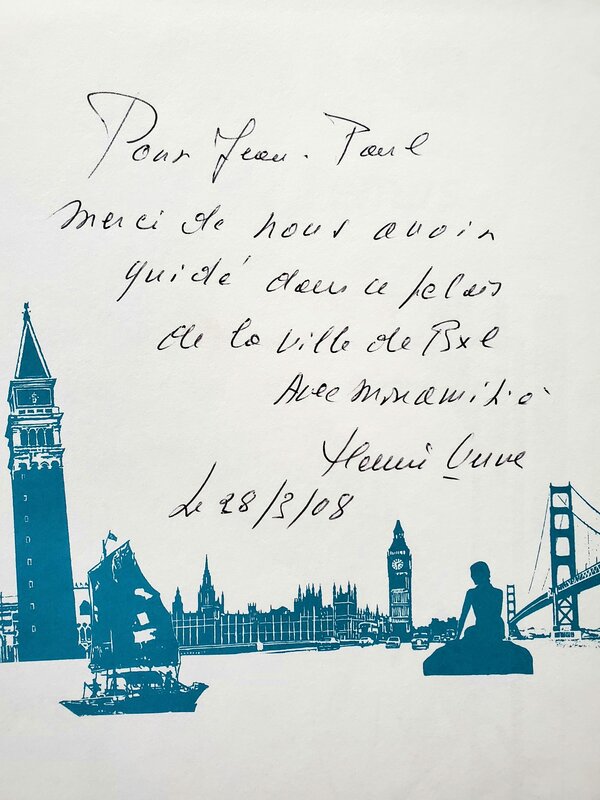 Pour Jean-Paul
Merci de nous avoir
guidé dans ce palais
de la ville de Bxl
Avec mon amitié
Henri
Le 28/3/08